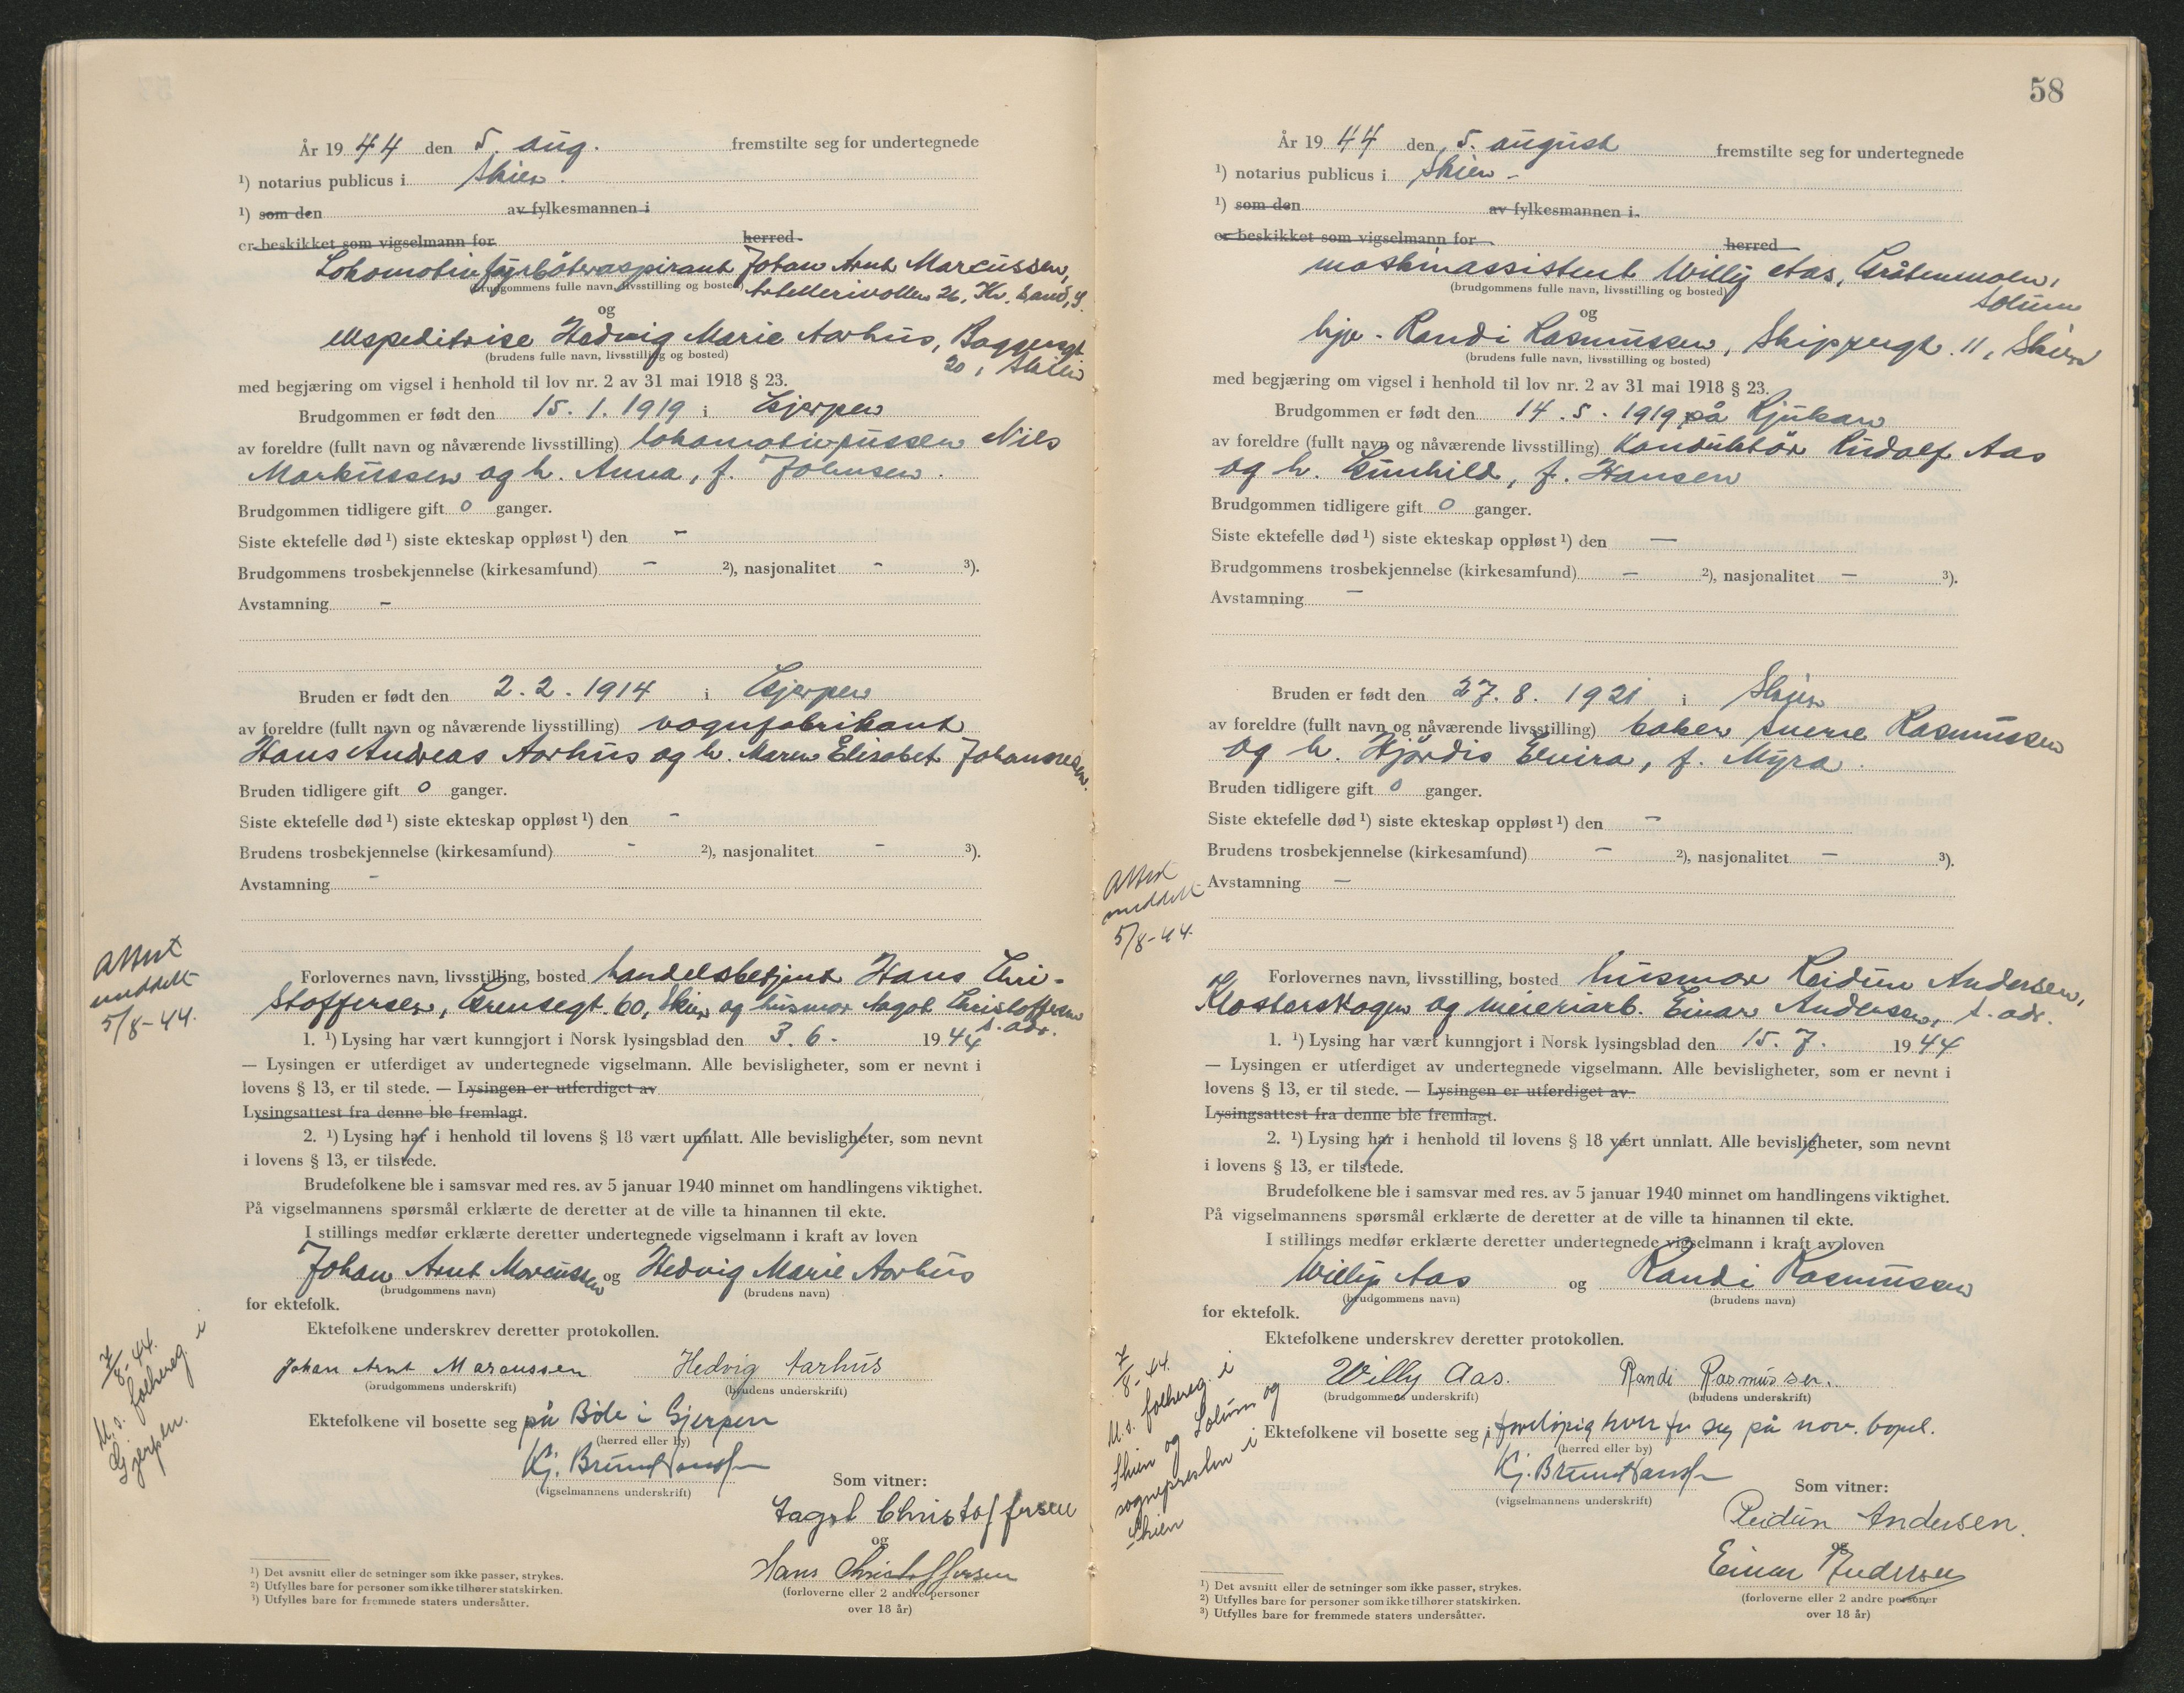 År 19 44 den 5. aug. fremstilte seg for undertegnede
¹) notarius publicus i Skien.
¹) som den av fylkesmannen i
er beskikket som vigselmann for herred
Lokomotivfyrbøteraspirant Johan Arnt Marcussen,
(brudgommens fulle navn, livsstilling og bosted) Artellerivollen 26, Kr. Sand, S.
og
ekspeditrise Hedvig Marie Aarhus, Baggersgt.
(brudens fulle navn, livsstilling og bosted) 20, Skien
med begjæring om vigsel i henhold til lov nr. 2 av 31 mai 1918 § 23.
Brudgommen er født den 15. 1. 1919 i Gjerpen
av foreldre (fullt navn og nåværende livsstilling) lokomotivpusser Nils
Markussen og h. Anna, f. Johnsen.
Brudgommen tidligere gift 0 ganger.
Siste ektefelle død ¹) siste ekteskap oppløst ¹) den -
Brudgommens trosbekjennelse (kirkesamfund) - ²), nasjonalitet - ³).
Avstamning -
Bruden er født den 2. 2. 1914 i Gjerpen
av foreldre (fullt navn og nåværende livsstilling) vognfabrikant
Hans Andreas Aarhus og h. Maren Elisabet Johannesen.
Bruden tidligere gift 0 ganger.
Siste ektefelle død ¹) siste ekteskap oppløst ¹) den -
Brudens trosbekjennelse (kirkesamfund) - ²), nasjonalitet - ³).
Avstamning -
Attest
meddelt
5/8-44.
Forlovernes navn, livsstilling, bosted handelsbetjent Hans Chri-
stoffersen, Grensegt. 60, Skien og husmor Aagot Christoffersen
s. adr.
1. ¹) Lysing har vært kunngjort i Norsk lysingsblad den 3. 6. 19 44
— Lysingen er utferdiget av undertegnede vigselmann. Alle bevisligheter, som er nevnt i
lovens § 13, er til stede. — Lysingen er utferdiget av
Lysingsattest fra denne ble fremlagt.
2. ¹) Lysing har i henhold til lovens § 18 vært unnlatt. Alle bevisligheter, som nevnt
i lovens § 13, er tilstede.
Brudefolkene ble i samsvar med res. av 5 januar 1940 minnet om handlingens viktighet.
På vigselmannens spørsmål erklærte de deretter at de ville ta hinannen til ekte.
I stillings medfør erklærte deretter undertegnede vigselmann i kraft av loven
Johan Arnt Marcussen og Hedvig Marie Aarhus
(brudgommens navn) (brudens navn)
for ektefolk.
Ektefolkene underskrev deretter protokollen.
Johan Arnt Marcussen Hedvig Aarhus
(brudgommens underskrift) (brudens underskrift)
7/8-44.
M. s. folkereg. i
Gjerpen.
Ektefolkene vil bosette seg på Bøle i Gjerpen
(herred eller by)
(vigselmannens underskrift)
Som vitner:
Aagot Christoffersen
og
Hans Christoffersen
(forloverne eller 2 andre personer
over 18 år)
¹) Det avsnitt eller de setninger som ikke passer, strykes.
²) Utfylles bare for personer som ikke tilhører statskirken.
³) Utfylles bare for fremmede staters undersåtter.
58
År 19 44 den 5. august fremstilte seg for undertegnede
¹) notarius publicus i Skien -
¹) som den av fylkesmannen i
er beskikket som vigselmann for herred
maskinassistent Willy Aas, Gråtenmoen,
(brudgommens fulle navn, livsstilling og bosted) Solum
og
hjv. Randi Rasmussen, Skippergt. 11, Skien
(brudens fulle navn, livsstilling og bosted)
med begjæring om vigsel i henhold til lov nr. 2 av 31 mai 1918 § 23.
Brudgommen er født den 14. 5. 1919 på Rjukan
av foreldre (fullt navn og nåværende livsstilling) Konduktør Rudolf Aas
og h. Gunhild, f. Hansen
Brudgommen tidligere gift 0 ganger.
Siste ektefelle død ¹) siste ekteskap oppløst ¹) den —
Brudgommens trosbekjennelse (kirkesamfund) — ²), nasjonalitet — ³).
Avstamning —
Bruden er født den 27. 8. 1921 i Skien
av foreldre (fullt navn og nåværende livsstilling) baker Sverre Rasmussen
og h. Hjørdis Elvira, f. Myra.
Bruden tidligere gift 0 ganger.
Siste ektefelle død ¹) siste ekteskap oppløst ¹) den —
Brudens trosbekjennelse (kirkesamfund) — ²), nasjonalitet — ³).
Avstamning —
Attest
meddelt
5/8-44.
Forlovernes navn, livsstilling, bosted husmor Reidun Andersen,
Klosterskogen og meieriarb. Einar Andersen, s. adr.
1. ¹) Lysing har vært kunngjort i Norsk lysingsblad den 15. 7. 19 44
— Lysingen er utferdiget av undertegnede vigselmann. Alle bevisligheter, som er nevnt i
lovens § 13, er til stede. — Lysingen er utferdiget av
Lysingsattest fra denne ble fremlagt.
2. ¹) Lysing har i henhold til lovens § 18 vært unnlatt. Alle bevisligheter, som nevnt
i lovens § 13, er tilstede.
Brudefolkene ble i samsvar med res. av 5 januar 1940 minnet om handlingens viktighet.
På vigselmannens spørsmål erklærte de deretter at de ville ta hinannen til ekte.
I stillings medfør erklærte deretter undertegnede vigselmann i kraft av loven
Willy Aas og Randi Rasmussen
(brudgommens navn) (brudens navn)
for ektefolk.
Ektefolkene underskrev deretter protokollen.
Willy Aas. Randi Rasmussen.
(brudgommens underskrift) (brudens underskrift)
7/8-44.
M. s. folkereg. i
Skien og Solum og
sognepresten i
Skien
Ektefolkene vil bosette seg i foreløpig hver for seg på nov. bopel.
(herred eller by)
(vigselmannens underskrift)
Som vitner:
Reidun Andersen.
og
Einar Andersen
(forloverne eller 2 andre personer
over 18 år)
¹) Det avsnitt eller de setninger som ikke passer, strykes.
²) Utfylles bare for personer som ikke tilhører statskirken.
³) Utfylles bare for fremmede staters undersåtter.